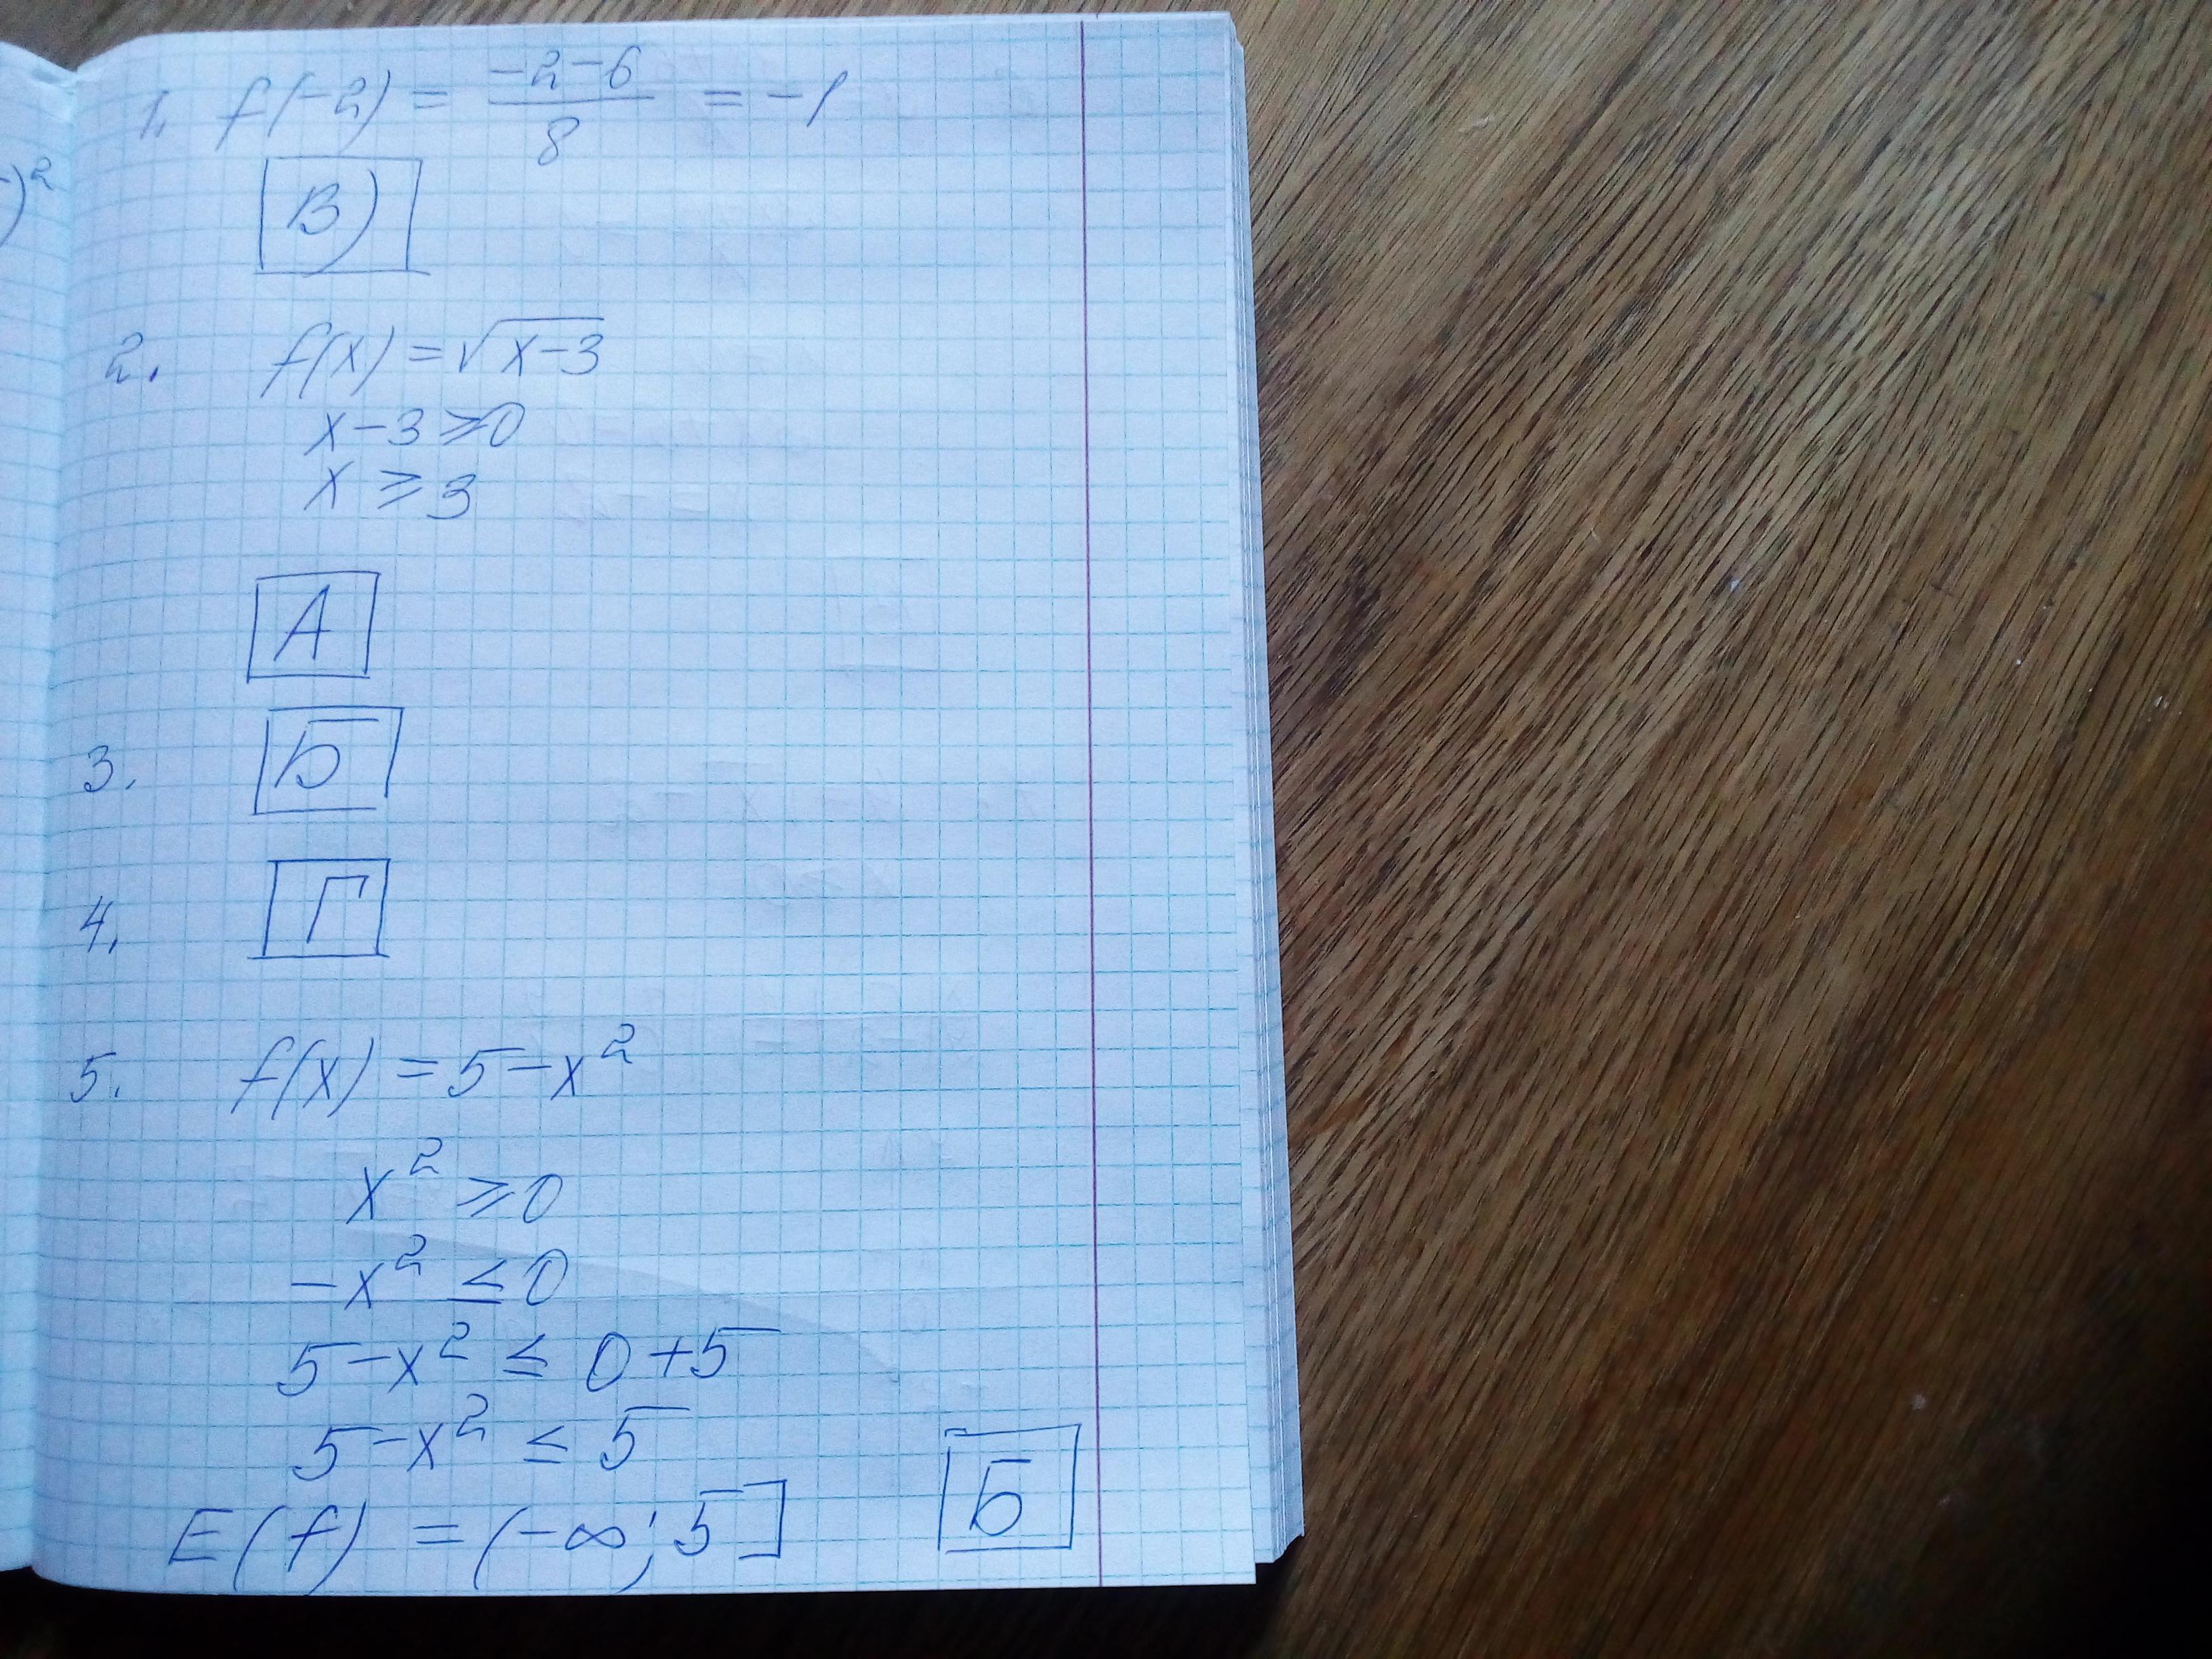 )²
1. f(-2) = \frac{-2-6}{8} = -1
В)
2. f(x) = √(x-3)
x-3 ⩾ 0
x ⩾ 3
А
3. Б
4. Г
5. f(x) = 5-x²
x² ⩾ 0
-x² ≤ 0
5-x² ≤ 0+5
5-x² ≤ 5
E(f) = (-∞; 5] Б